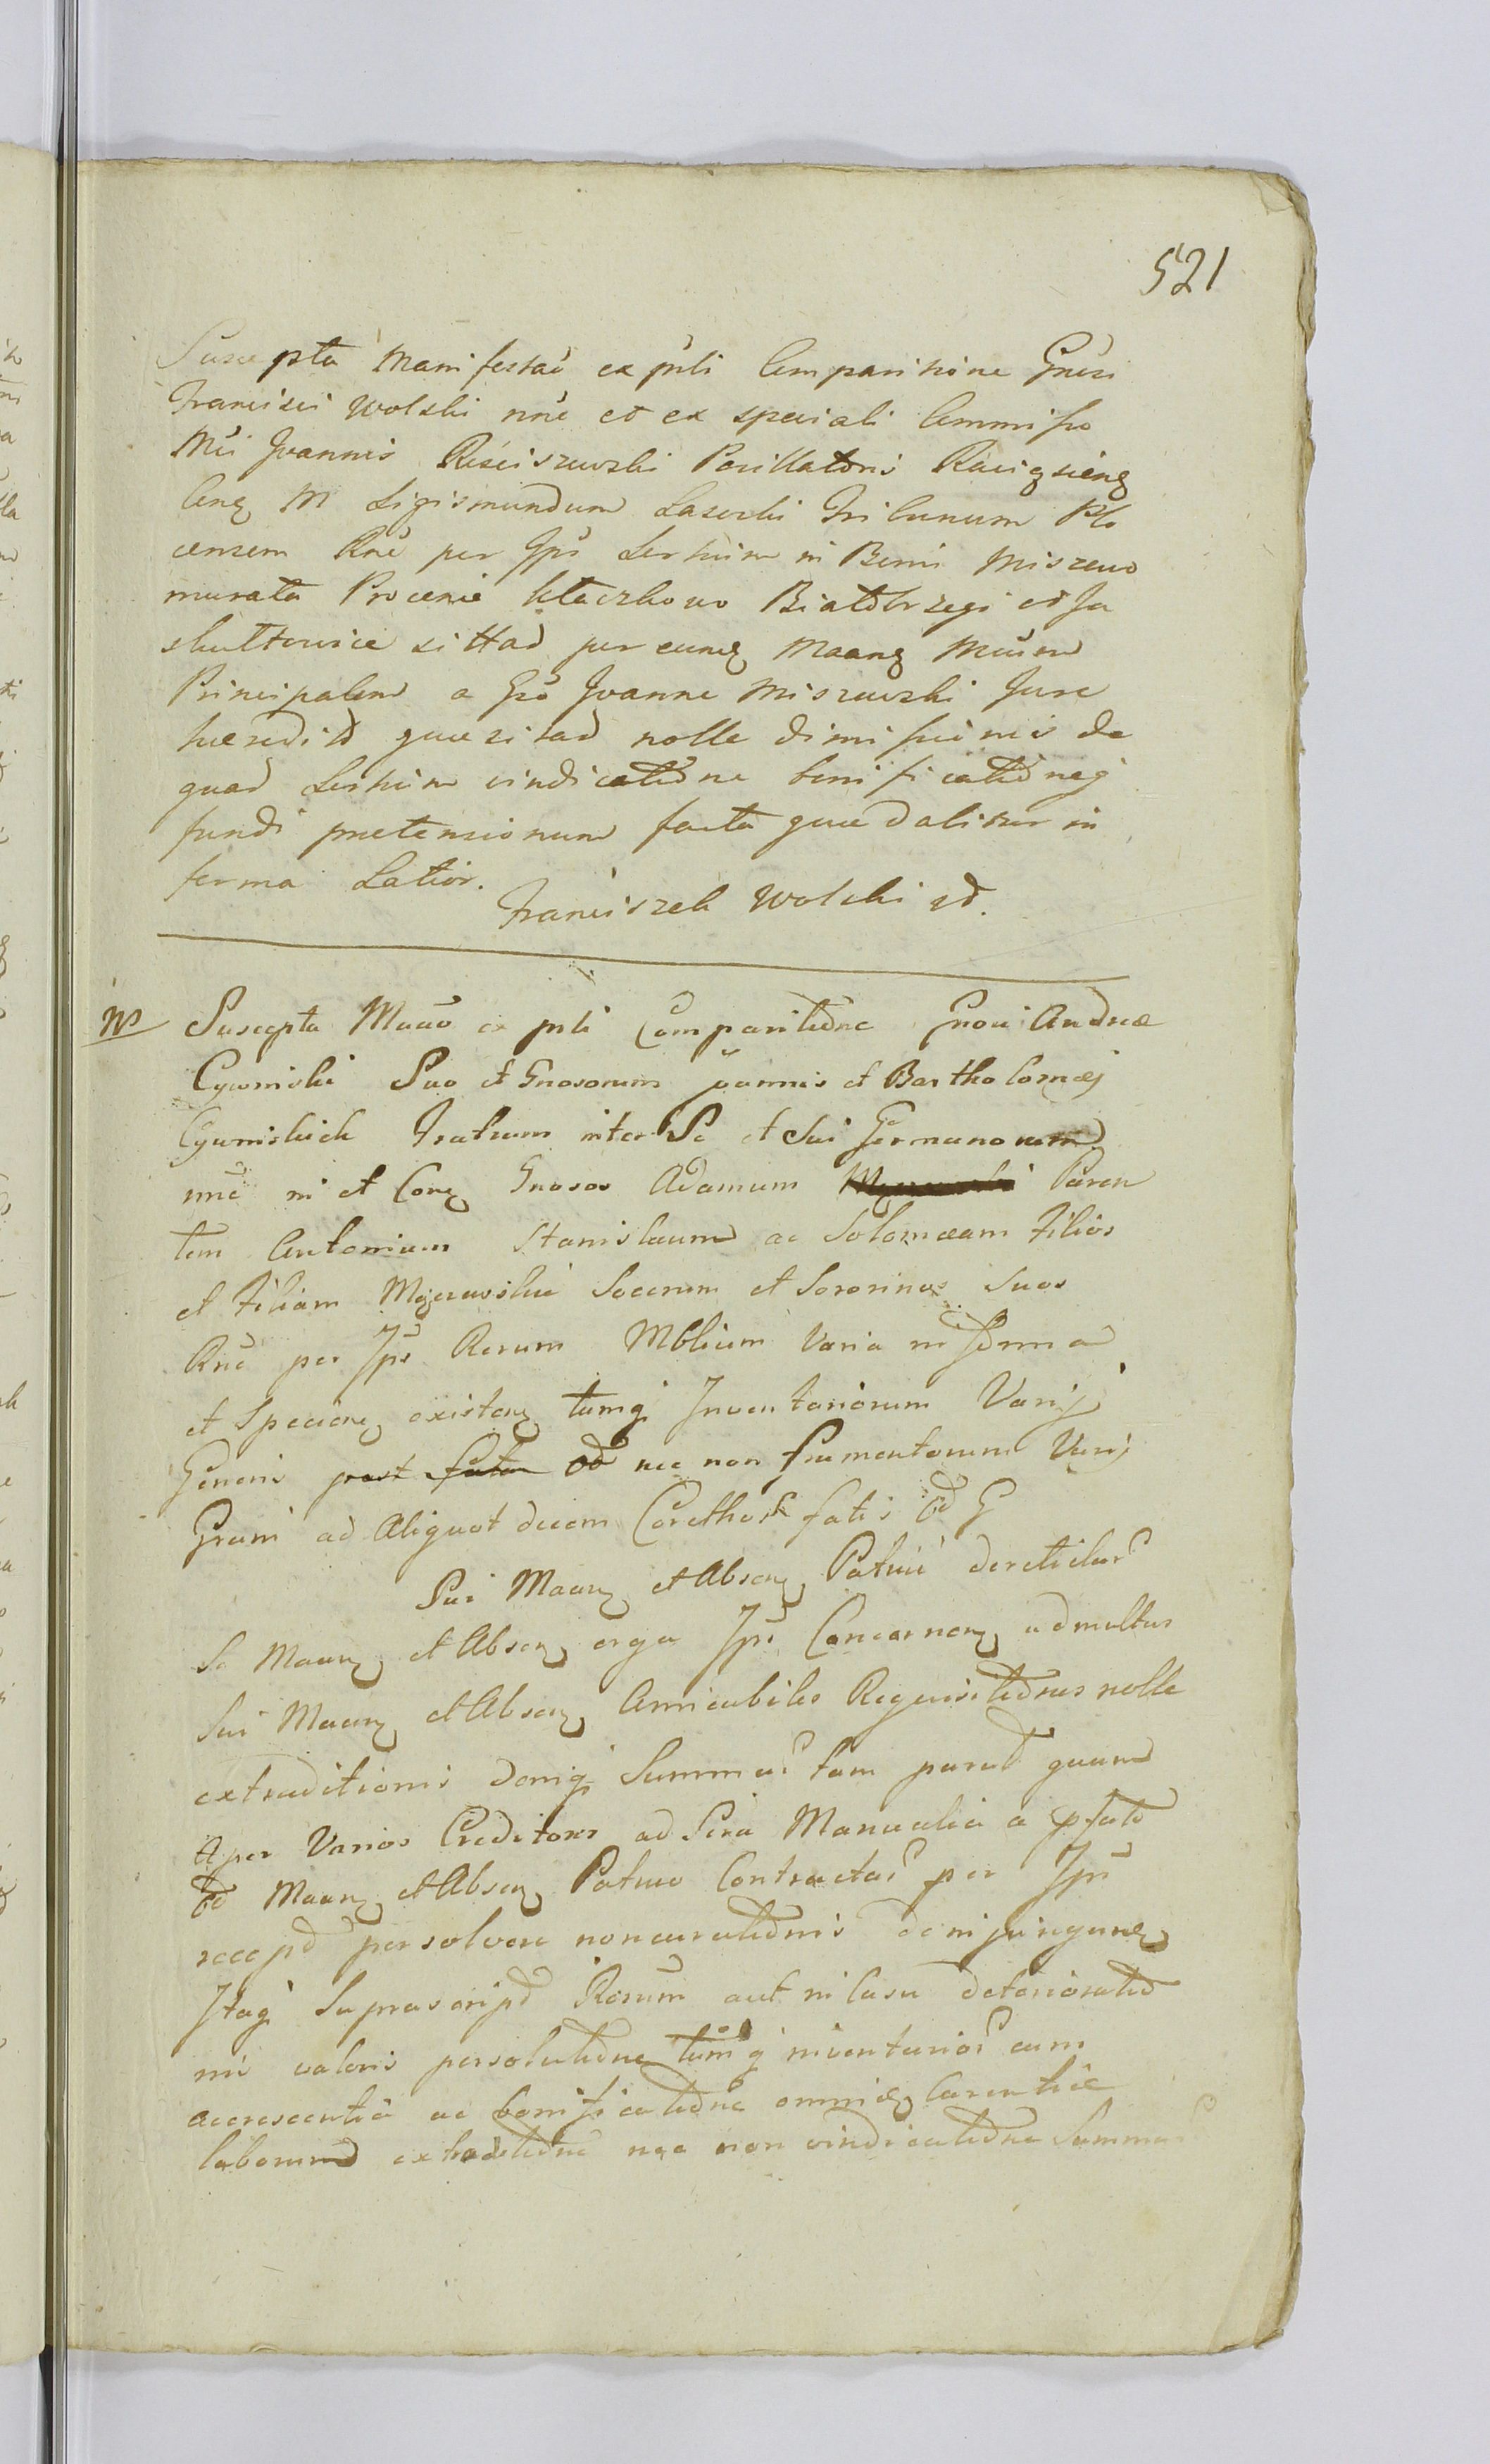 521
Suscepta Manifestaõ ex pñli Comparitione Gñesi
Francisci Wolski nñe et ex speciali Commisso
Mci Joannis Rościszewski Pocillatoris Raciązieng
Conq M Sigismundum Lasocki Tribunum Plo
censem Rñe per Ipś Sertium in Bonis Miszewo
murata Procenie Kłaczkowo Białobrzegi et Ja
skułtowice sittad per eunq Maanq Mcũm
Principalem a Gsõ Joanne Miszewski Jure
hæredito quæsitad nolle dimissionis de
quad Sertium vindicatione bonificationeq
fundi pretensionum facta quæ dabitur in
forma Latior.
Franciszek Wolski sd.
Ns Suscepta Maão ex pñli Comparitione Gnosi Andreæ
Cywiński Suo et Gnosorum Joannis et Bartholomæj
Cywińskich Fratrum inter Se et Sui Germanorum
nñe ni et Conq Gnosos Adamum Paren
tem Antonium Stanislaum ac Solomæam Filios
et Filiam Mgzewskie Socerum et Sororinos Suos
Rñe per Ipś Rerum Mblium Varia in forma
et Specieq existenq tumq Inventariorum Varij
Generis post fata od nec non frumentorum Varij
Grani ad Aliquot decem Corethos fatis Od G
Sui Maanq et Absenq Patrui derelictar
Se Maanq et Absenq erga Ipś Concernenq admultas
Sui Maanq et Absenq Amicabiles Requisitiones nolle
extraditionis deniq Summas tam parat quam
A per Varios Creditores ad Sera Manualia a pfato
Od Maanq et Absenq Patruo Contractas per Ipś
recepd persolvere noncurationis de injungunq
Itaq Suprascripd Rerum aut in casu deterioratio
nis valoris persolutione tumq inventarior cum
accrescentia ac bonificatione omniq Carentiæ
laborum extraditione nec non vindicatione Summar